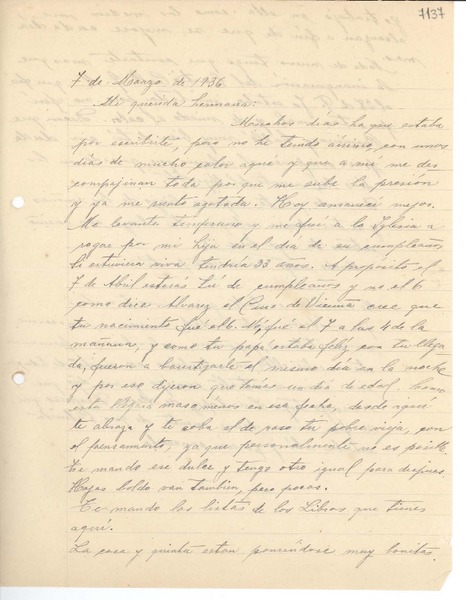 7137
7 de Marzo de 1936
Mi querida hermana:
Muchos dias ha que estaba
por escribirte, pero no he tenido ánimo, con unos
dias de mucho calor aqui y que a mi me des
compajinan toda porque me sube la presión
y ya me siento agotada. Hoy amanecí mejor.
Me levanté temprano y me fuí a la Iglesia a
rogar por mi hija en el dia de su cumpleaños
Si estuviera viva tendria 33 años. A propósito el
7 de Abril estarás tú de cumpleaños y no el 6
como dice Alvarez el Cura de Vicuña cree que
tu nacimiento fué el 6. No, fué el 7 a las 4 de la
mañana, y como tu papá estaba feliz con tu llega
da, fueron a bautizarte el mismo dia en la noche
y por eso dijeron que tenias un dia de edad.
esta llegará mas o menos en esa fecha, desde aquí
te abraza y te
el pensamiento, ya que personalmente no es posible
Te mando ese dulce y tengo otro igual para despues.
Hojas boldo van tambien, pero pocas.
Te mando las listas de los Libros que tienes
aquí.
La casa y quinta estan poniéndose muy bonitas.